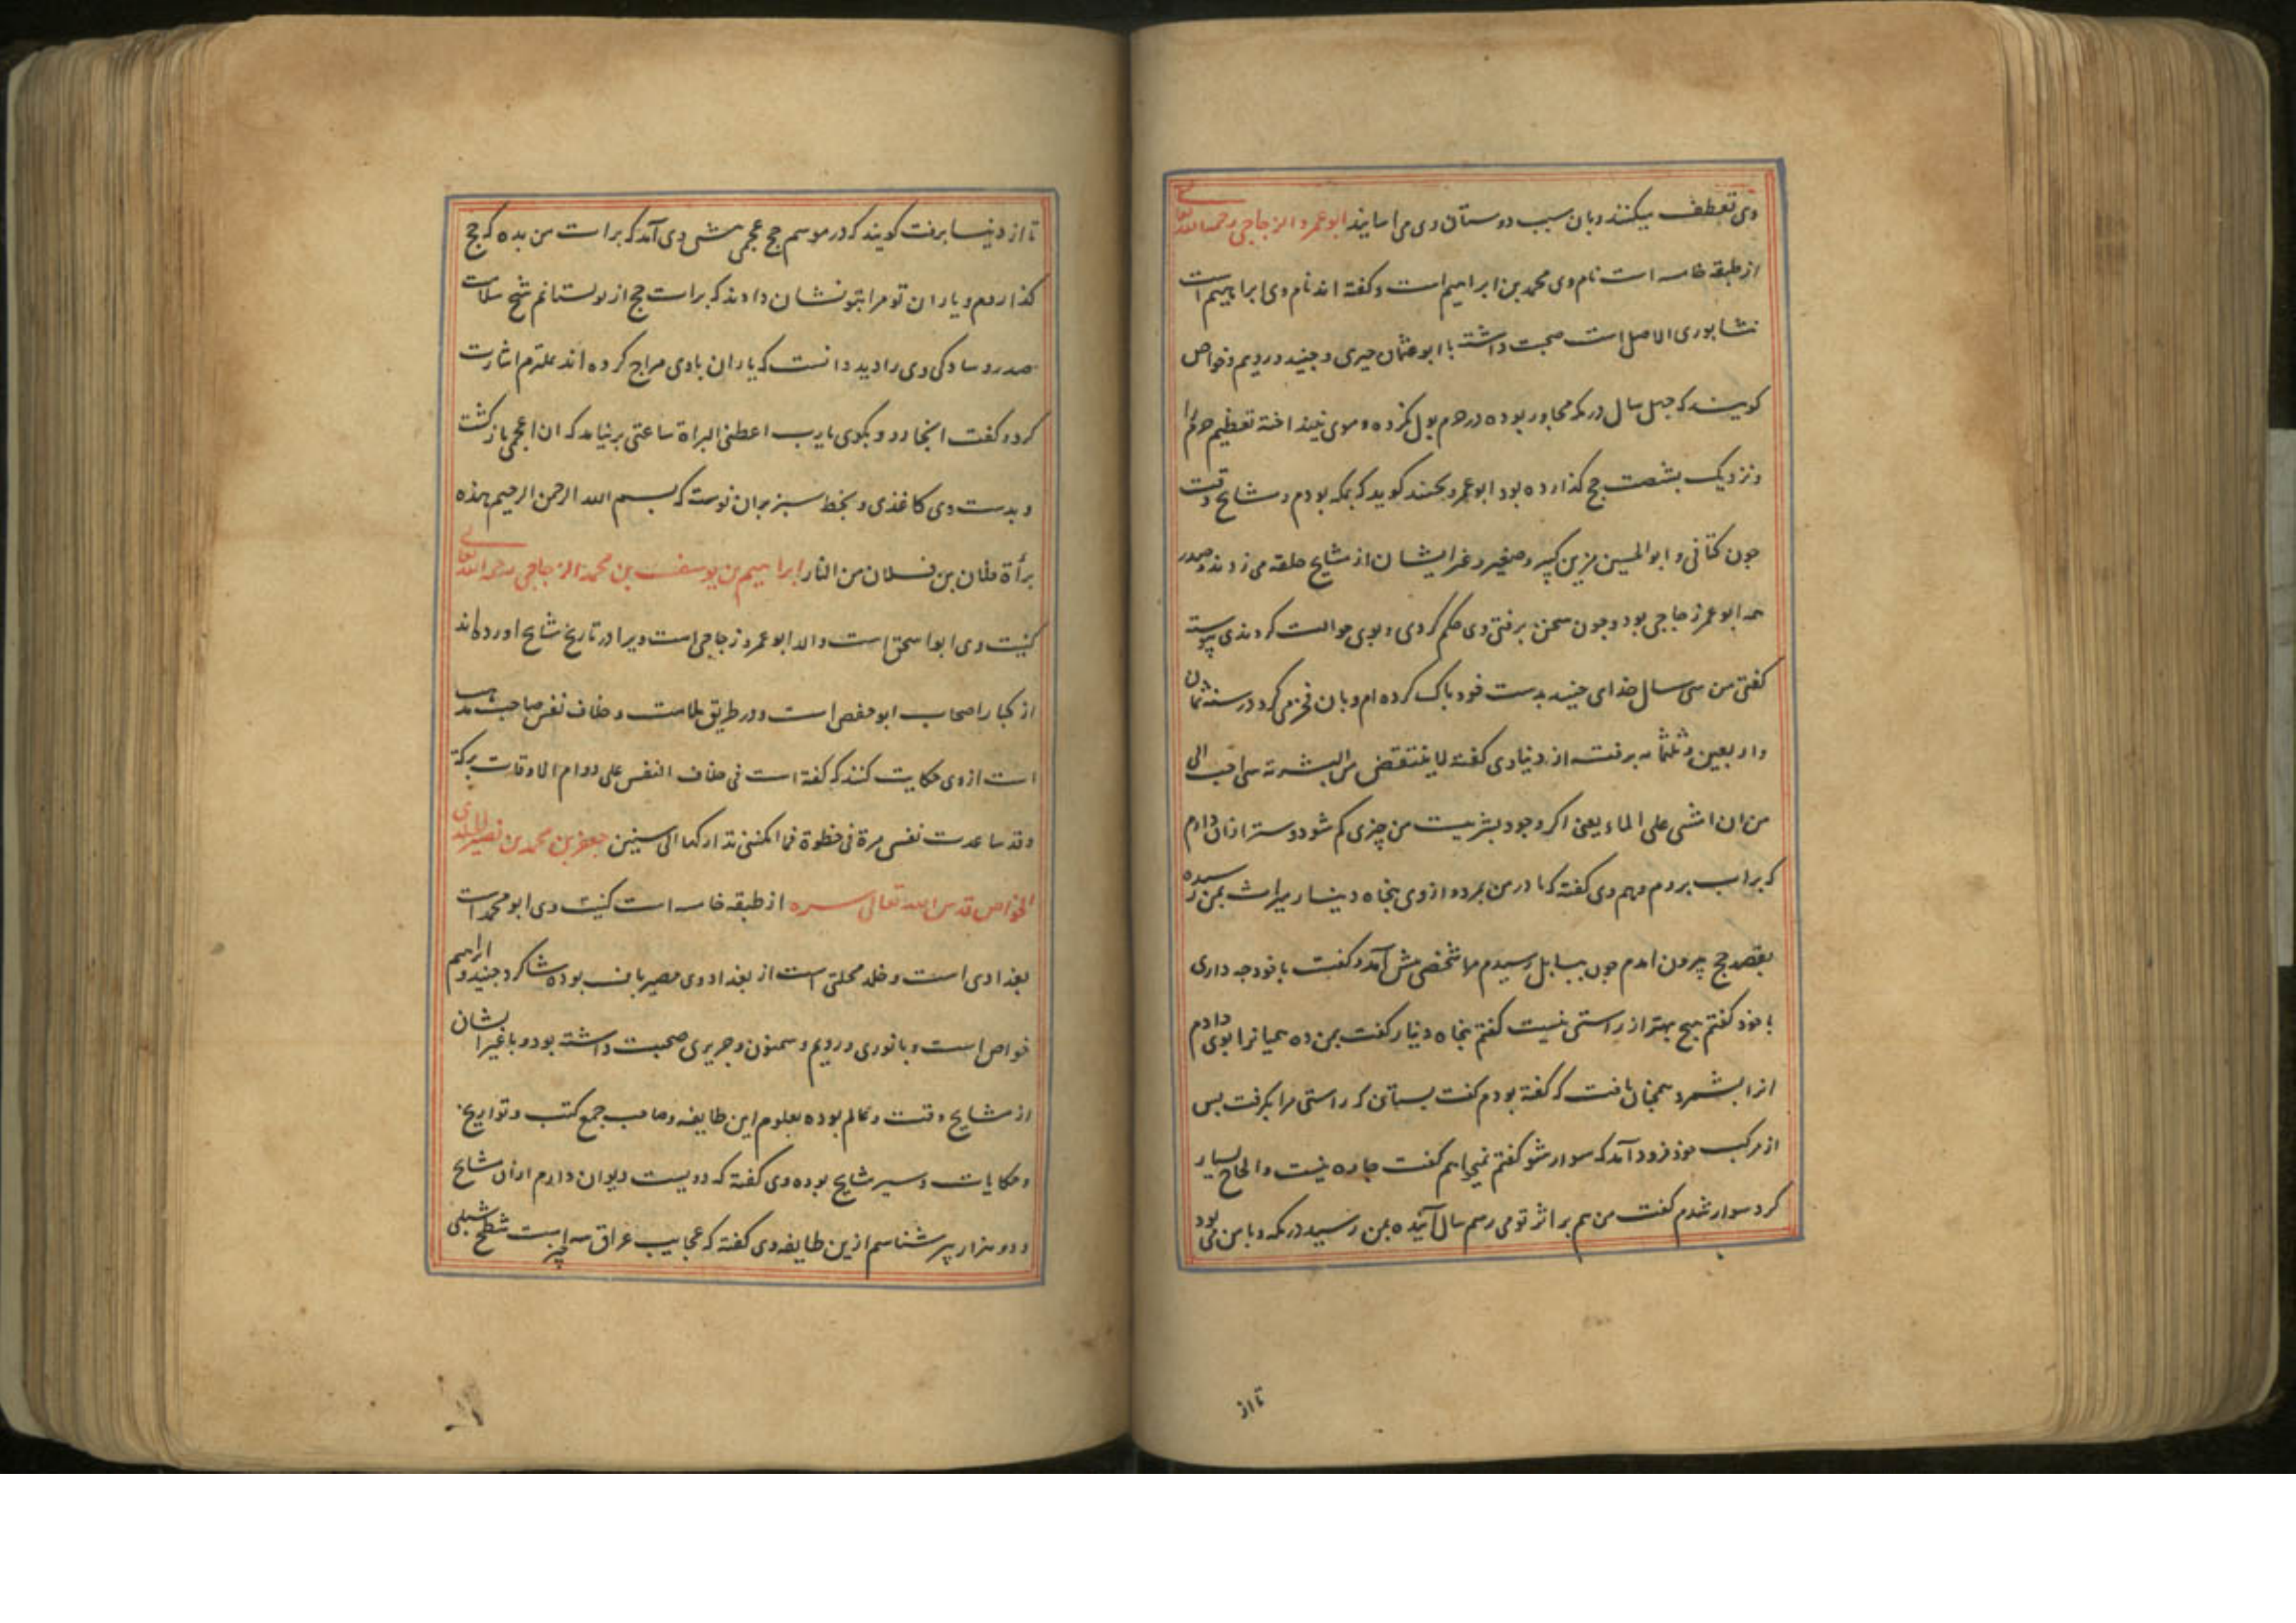 وی تعطف میکنند و بان سبب دوستان وی می اسایند ابوعمرو الزجاجی رحمه الله تعالی
از طبقه خامسه است نام وی محمد بن ابراهیم است و کفته اند نام وی ابراهیم است
نشابوری الاصل است صحبت داشته با ابو عثمان حیری و جنید و رویم و خواص
کویند که جهل سال در مکه مجاور بوده در حرم بول نکرده و موی نینداخته تعظیم حرم را
و نزدیک بشصت حج کذارده بود ابو عمرو کوید که بمکه بودم و مشایخ وقت
جون کتانی و ابوالحسین مزین کبیر و صغیر و غیر ایشان از مشایخ حلقه می زدند و صدر
همه ابو عمرو زجاجی بود و جون سخن برفتی وی حکم کردی و بوی حوالت کردندی پیوسته
کفتی من سی سال خدای جنید بدست خود باک کرده ام و بان فخر می کرد در سنه ثمان
و اربعین و ثلثمائه برفت از دنیا وی کفته لا ینتقض من البشریة شی احب الی
من ان امشی علی الماء یعنی اکر وجود بشریت من چیزی کم شود دوستر ازان دارم
که بر اب بروم و هم وی کفته که مادر من بمرد و از وی بنجاه دینار میراث بمن رسیده
بقصد حج بیرون امدم جون ببابل رسیدم مرا شخصی پیش آمد و کفت با خود جه داری
با خود کفتم هیج بهتر از راستی نیست کفتم بنجاه دینار کفت بمن ده همیانرا بوی دادم
انرا بشمرد همجنان یافت که کفته بودم کفت بستان که راستی مرا بکرفت بس
از مرکب خود فرود آمد که سوار شو کفتم نمیخواهم کفت جاره نیست و الحاح بسیار
کرد سوار شدم کفت من هم بر اثر تو می رسم سال آینده بمن رسید در مکه و با من می بود
تا از
تا از دنیا برفت کویند که در موسم حج عجمی پیش وی آمد که برات من بده که حج
کذاردم و یاران تو مرا بتو نشان دادند که برات حج از تو بستانم شیخ سلامت
صدر و سادکی وی را دید دانست که یاران با وی مزاح کرده اند بملتزم اشارت
کرد و کفت انجا رو و بکوی یا رب اعطنی البراة ساعتی برنیامد که ان اعجمی باز کشت
و بدست وی کاغذی و بخط سبز بران نوشته که بسم الله الرحمن الرحیم هذه
برأة فلان بن فلان من النار ابراهیم بن یوسف بن محمد الزجاجی رحمه الله تعالی
کنیت وی ابو اسحق است والد ابو عمرو زجاجی است ویرا در تاریخ مشایخ اورده اند
از کبار اصحاب ابو حفص است و در طریق ملامت و خلاف نفس صاحب مذهب
است از وی حکایت کنند که کفته است فی خلاف النفس علی دوام الاوقات برکة
و قد ساعدت نفسی مرة فی خطوة فما امکننی تدارکها الی سنین جعفر بن محمد بن نصیر الخلدی
الخواص قدس الله تعالی سره از طبقه خامسه است کنیت وی ابو محمد است
بغدادی است و خلد محلتی است از بغداد وی حصیر باف بوده شاکرد جنید و ابراهیم
خواص است و با نوری و رویم و سمنون و جریری صحبت داشته بود و با غیر ایشان
از مشایخ وقت و عالم بوده بعلوم این طایفه و صاحب جمع کتب و تواریخ
و حکایات و سیر مشایخ بوده وی کفته که دویست دیوان دارم ازان مشایخ
و دو هزار پیر شناسم ازین طایفه وی کفته که عجایب عراق سه چیز است شطح شبلی